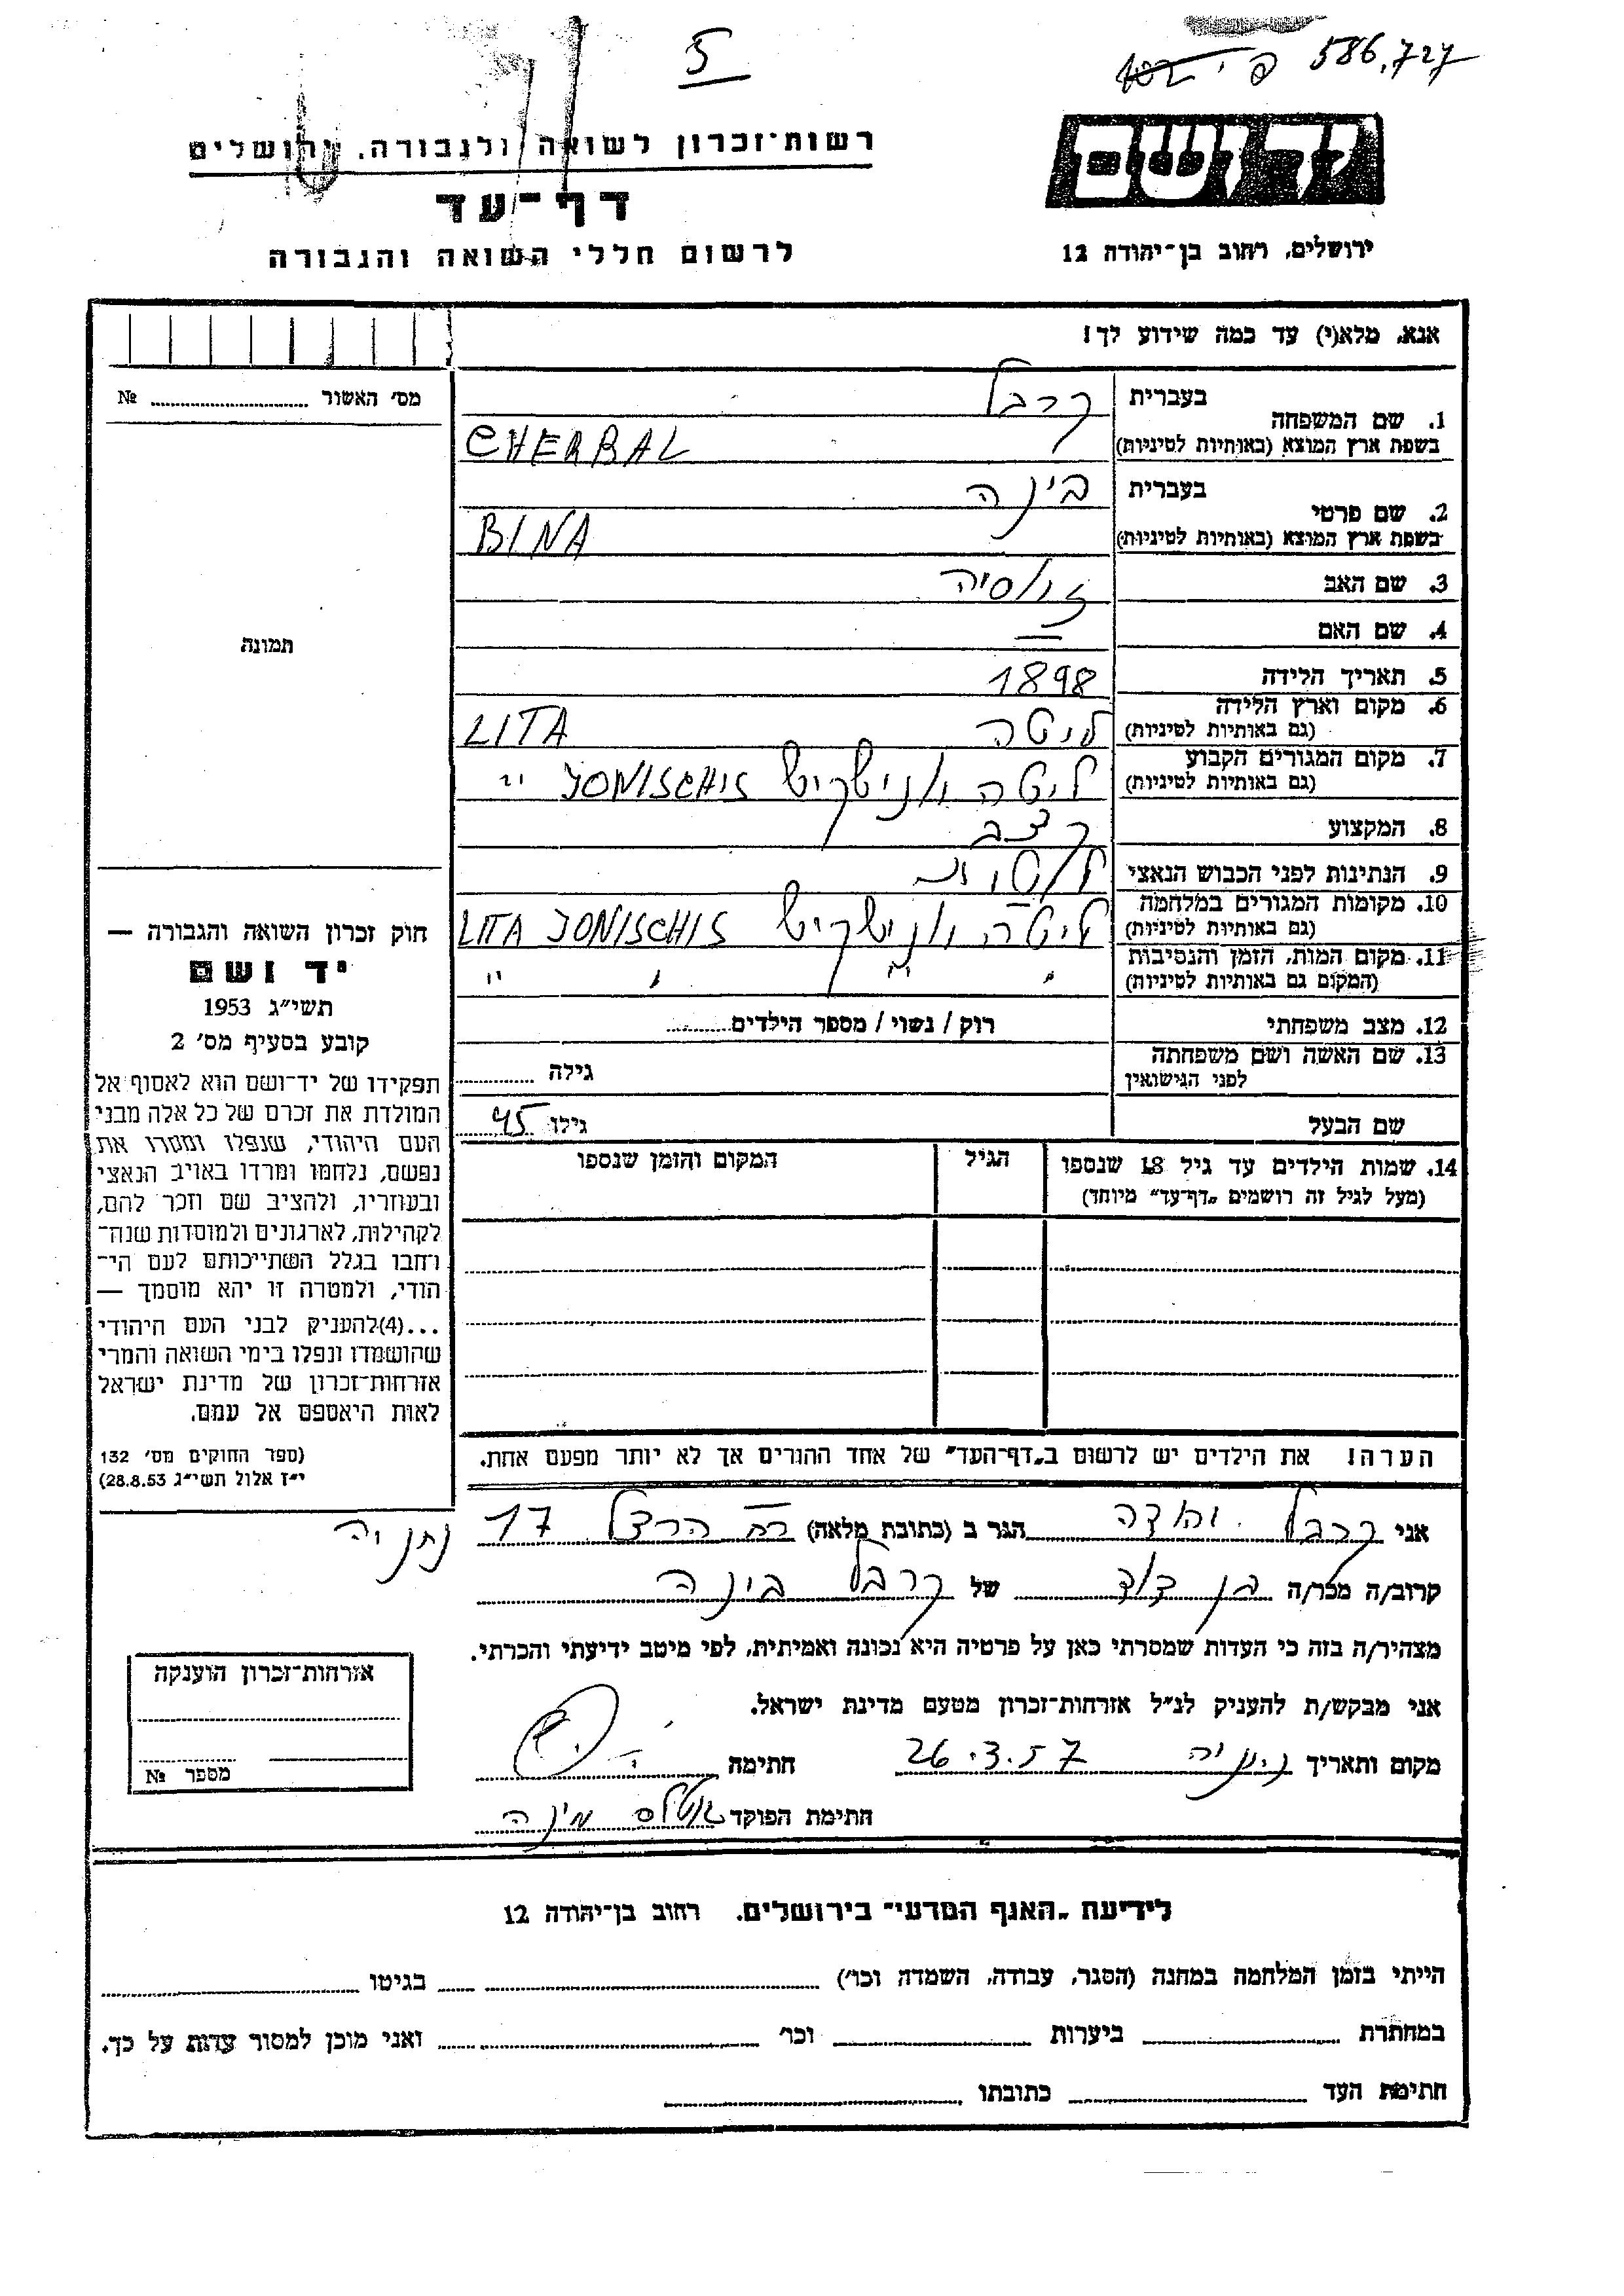 5
586,727
רשות־זכרון לשואה ולגבורה, ירושלים
דף־עד
לרשום חללי השואה והגבורה
יד ושם
ירושלים, רחוב בן־יהודה 12
אנא, מלא(י) עד כמה שידוע לך!
מס׳ האשור № ........
תמונה
1. שם המשפחה בעברית קרבל
בשפת ארץ המוצא (באותיות לטיניות) CHERBAL
2. שם פרטי בעברית בינה
בשפת ארץ המוצא (באותיות לטיניות) BINA
3. שם האב
4. שם האם —
5. תאריך הלידה 1898
6. מקום וארץ הלידה (גם באותיות לטיניות) ליטה LITA
7. מקום המגורים הקבוע (גם באותיות לטיניות) ליטה יאנישקיש JONISCHIS "
8. המקצוע קצב
9. הנתינות לפני הכבוש הנאצי
10. מקומות המגורים במלחמה (גם באותיות לטיניות) ליטה יאנישקיש LITA JONISCHIS
11. מקום המות, הזמן והנסיבות (המקום גם באותיות לטיניות) " " " "
12. מצב משפחתי רוק / נשוי / מספר הילדים........
13. שם האשה ושם משפחתה לפני הנישואין גילה ........
שם הבעל גילו 45
14. שמות הילדים עד גיל 18 שנספו (מעל לגיל זה רושמים „דף־עד” מיוחד) הגיל המקום והזמן שנספו
חוק זכרון השואה והגבורה —
יד ושם
תשי״ג 1953
קובע בסעיף מס׳ 2
תפקידו של יד־ושם הוא לאסוף אל
המולדת את זכרם של כל אלה מבני
העם היהודי, שנפלו ומסרו את
נפשם, נלחמו ומרדו באויב הנאצי
ובעוזריו, ולהציב שם וזכר להם,
לקהילות, לארגונים ולמוסדות שנה־
רחבו בגלל השתייכותם לעם הי־
הודי, ולמטרה זו יהא מוסמך —
...(4)להעניק לבני העם היהודי
שהושמדו ונפלו בימי השואה והמרי
אזרחות־זכרון של מדינת ישראל
לאות היאספם אל עמם.
(ספר החוקים מס׳ 132
י״ז אלול תשי״ג 28.8.53)
הערה! את הילדים יש לרשום ב„דף־העד” של אחד ההורים אך לא יותר מפעם אחת.
אני קרבל יהודה הגר ב (כתובת מלאה) רח הרצל 17 נתניה
קרוב/ה מכר/ה בן דוד של קרבל בינה
מצהיר/ה בזה כי העדות שמסרתי כאן על פרטיה היא נכונה ואמיתית, לפי מיטב ידיעתי והכרתי.
אני מבקש/ת להעניק לנ״ל אזרחות־זכרון מטעם מדינת ישראל.
מקום ותאריך נתניה 26.3.57 חתימה
חתימת הפוקד
אזרחות־זכרון הוענקה
מספר №
לידיעת „האגף המדעי” בירושלים, רחוב בן־יהודה 12
הייתי בזמן המלחמה במחנה (הסגר, עבודה, השמדה וכו׳) ........ בגיטו ........
במחתרת ........ ביערות ........ וכו׳ ........ ואני מוכן למסור עדות על כך.
חתימת העד ........ כתובתו ........